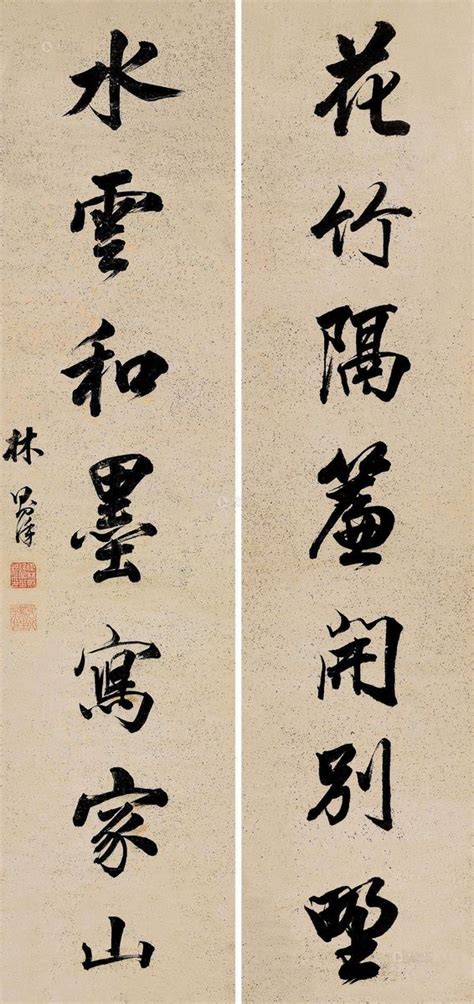 花竹隔簾開別墅
水雲和墨寫家山
林